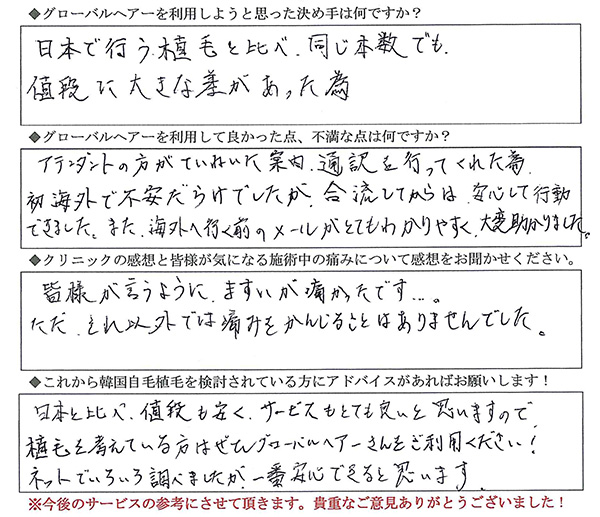 ◆グローバルヘアーを利用しようと思った決め手は何ですか？
日本で行う植毛と比べ、同じ本数でも、
値段に大きな差があった為
◆グローバルヘアーを利用して良かった点、不満な点は何ですか？
アテンダントの方がていねいた案内、通訳を行ってくれた為、
初海外で不安だらけでしたが、合流してからは、安心して行動
できました。また、海外へ行く前のメールがとてもわかりやすく、大変助かりました。
◆クリニックの感想と皆様が気になる施術中の痛みについて感想をお聞かせください。
皆様が言うように、ますいが痛かったです…。
ただ、それ以外では痛みをかんじることはありませんでした。
◆これから韓国自毛植毛を検討されている方にアドバイスがあればお願いします！
日本と比べ、値段も安く、サービスもとても良いと思いますので
植毛を考えている方はぜひグローバルヘアーさんをご利用ください！
ネットでいろいろ調べましたが、一番安心できると思います。
※今後のサービスの参考にさせて頂きます。貴重なご意見ありがとうございました！